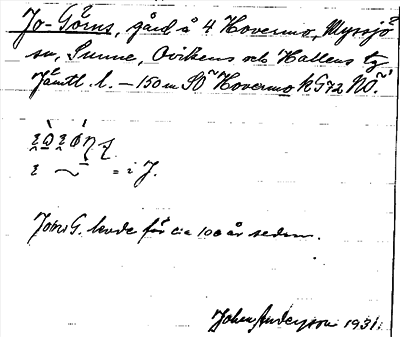 Jo-Görns, gård å 4 Hovermo, Myssjö
sn, Sunne, Ovikens och Hallens tg
Jämtl. l. – 150 m SO Hovermo k 572 NO.
= i J.
Jo G. levde för c:a 100 år sedan.
Johan Anderson 1931.